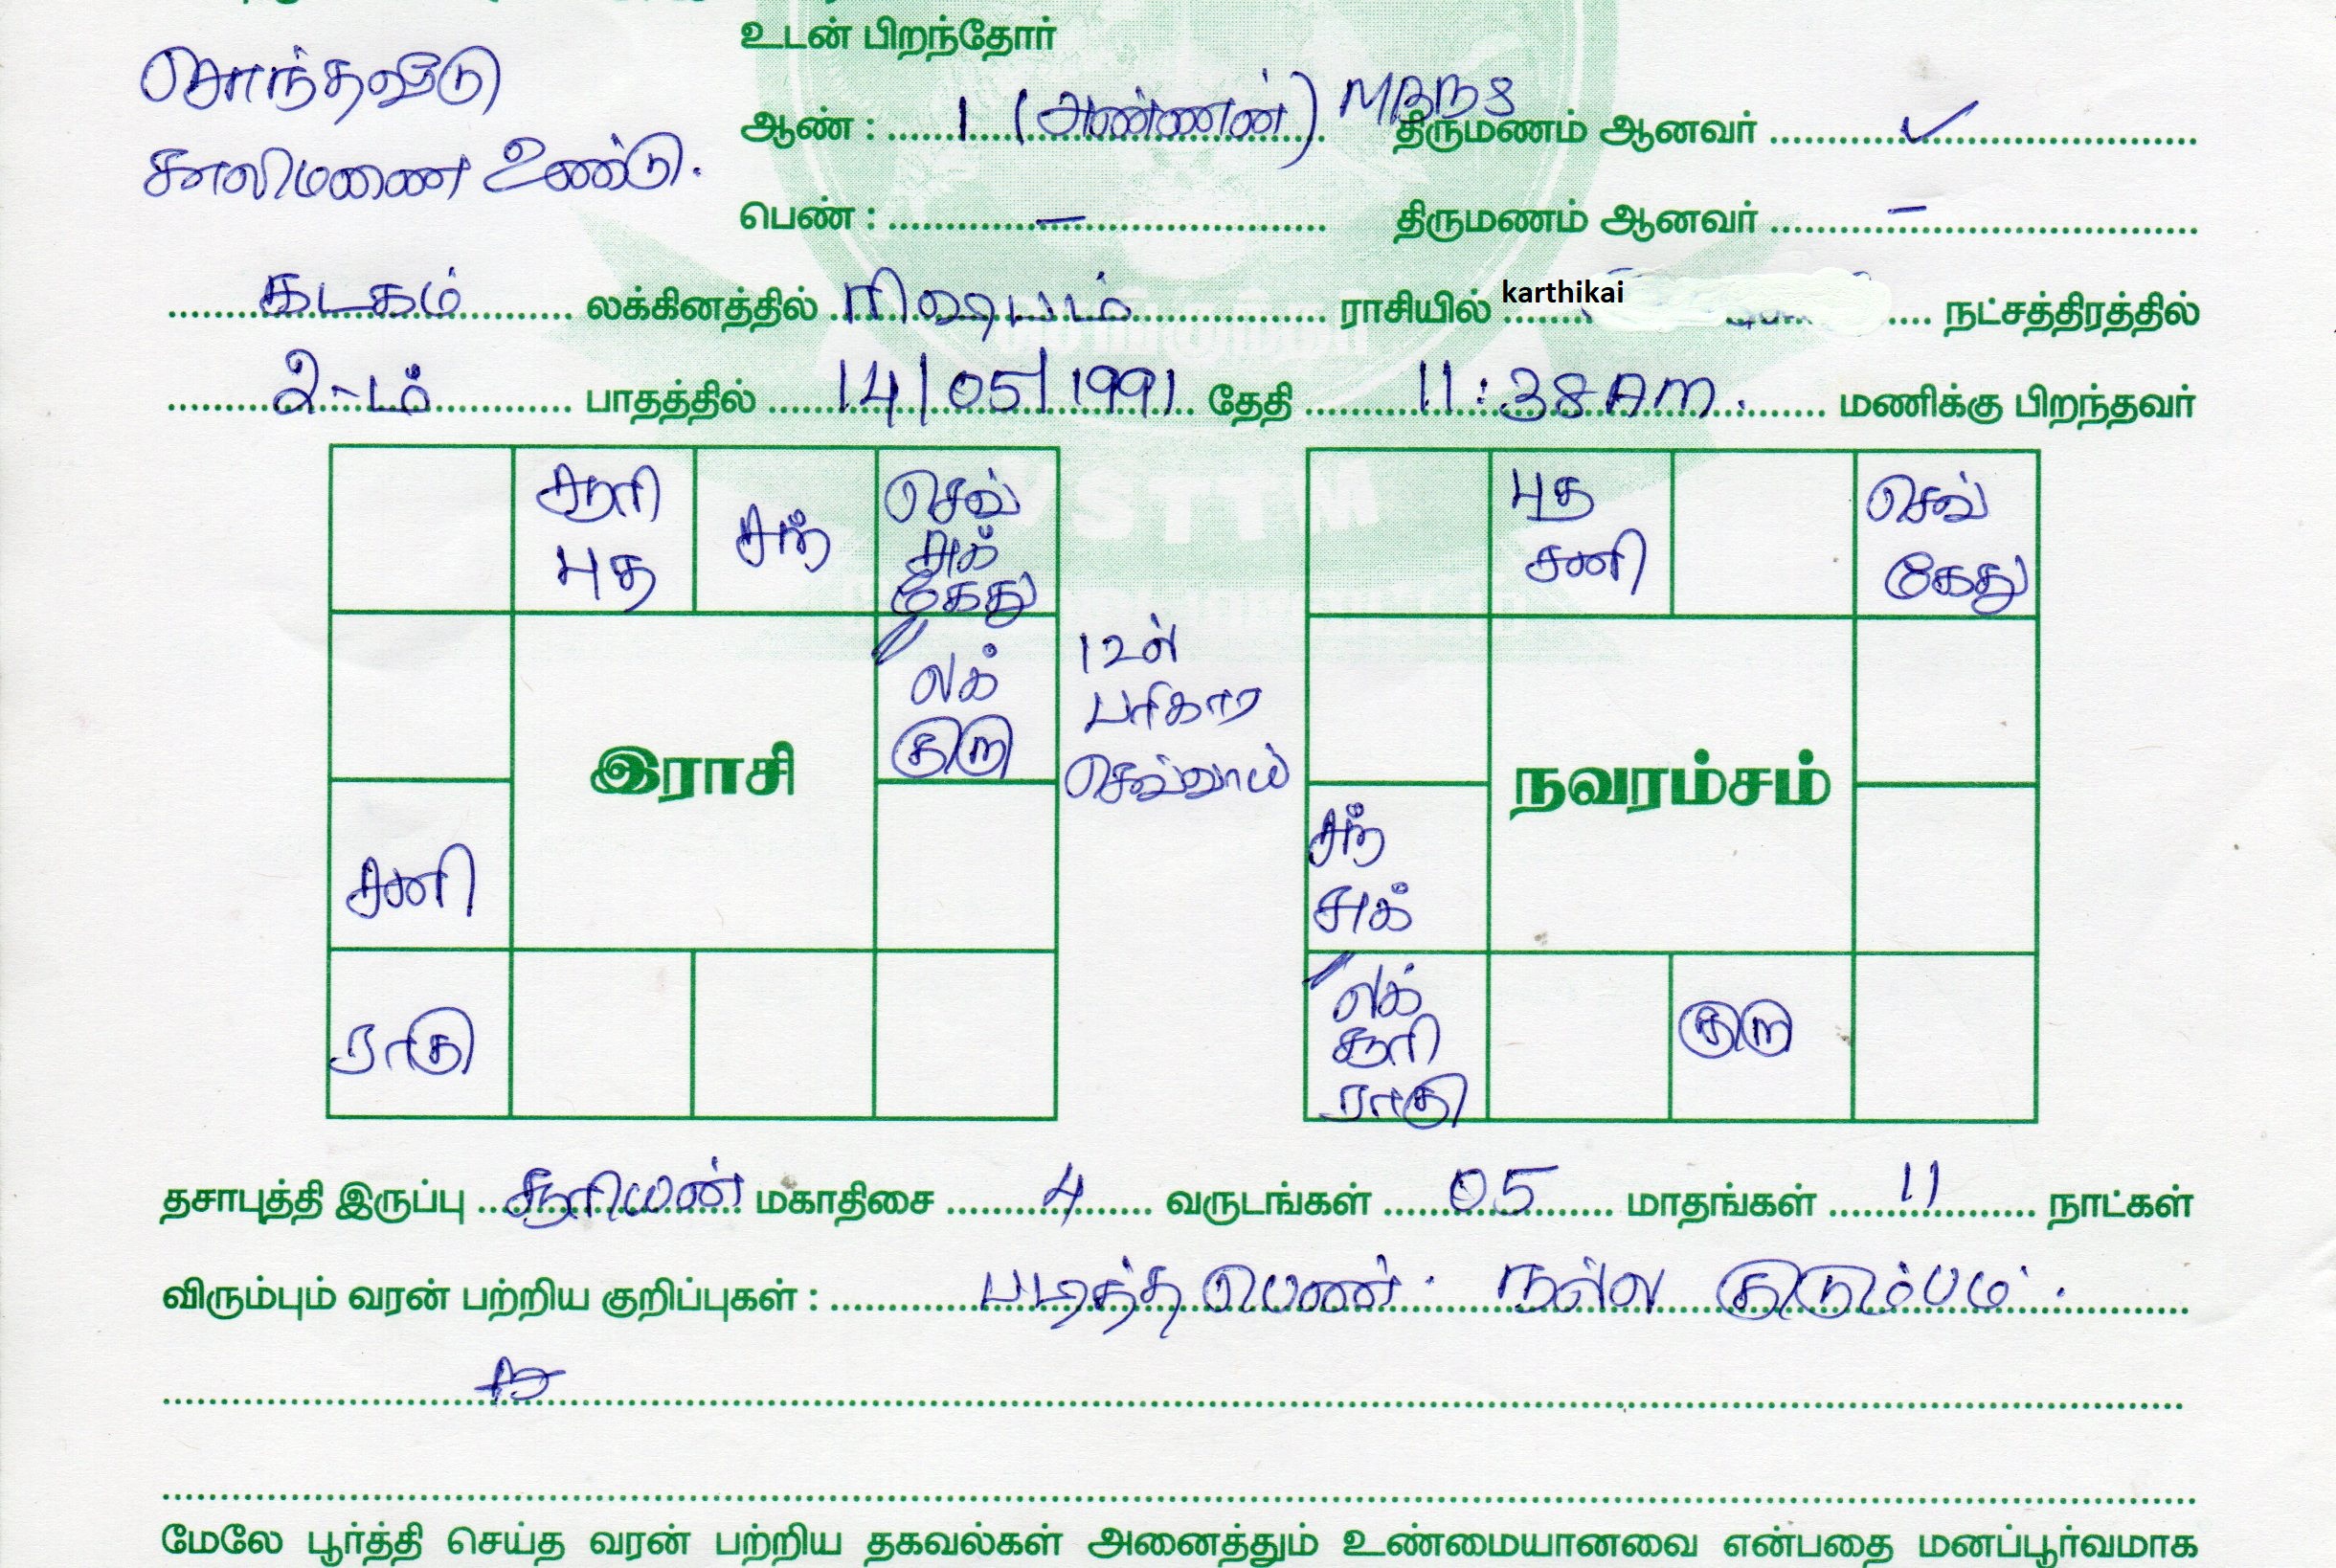 உடன் பிறந்தோர்
சொந்தவீடு
காலிமனை உண்டு.
ஆண் : 1 (அண்ணன்) திருமணம் ஆனவர் ✓
பெண் : – திருமணம் ஆனவர் –
கடகம் லக்கினத்தில் ரிஷபம் ராசியில் karthikai நட்சத்திரத்தில்
2-ம் பாதத்தில் 14/05/1991 தேதி 11:38 AM. மணிக்கு பிறந்தவர்
சூரி
புத
சந்
செவ்
சுக்
கேது
லக்
குரு
இராசி
சனி
ராகு
12ல்
பரிகார
செவ்வாய்
புத
சனி
செவ்
கேது
நவரம்சம்
சந்
சுக்
லக்
சூரி
ராகு
குரு
தசாபுத்தி இருப்பு சூரியன் மகாதிசை 4 வருடங்கள் 05 மாதங்கள் 11 நாட்கள்
விரும்பும் வரன் பற்றிய குறிப்புகள் : படித்த பெண். நல்ல குடும்பம்.
மேலே பூர்த்தி செய்த வரன் பற்றிய தகவல்கள் அனைத்தும் உண்மையானவை என்பதை மனப்பூர்வமாக